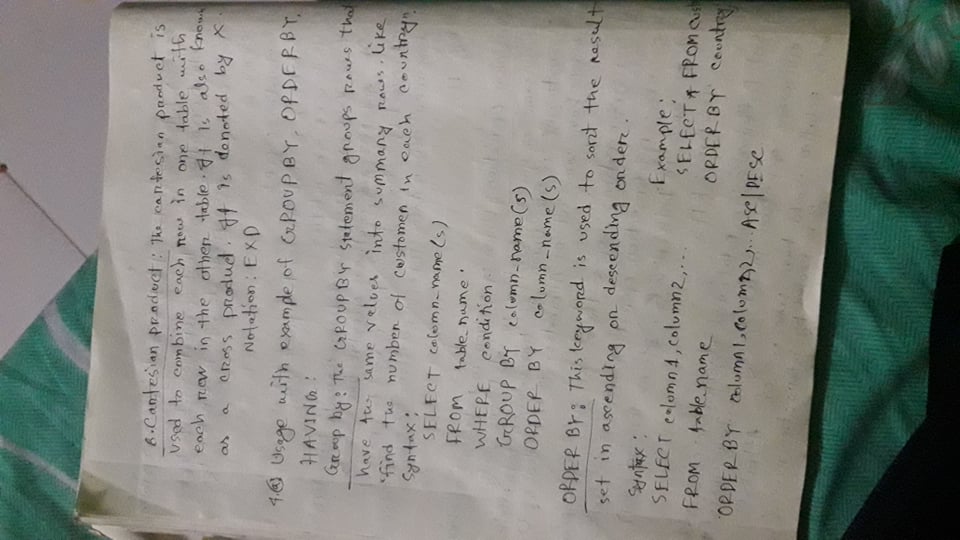 8. Cartesian product: The cartesian product is
used to combine each row in one table with
each row in the other table. It is also known
as a cross product. It is donated by X.
Notation: E X D
4.(a) Usage with example of GROUP BY, ORDER BY,
HAVING:
Group by: The GROUP BY statement groups rows that
have the same values into summary rows, like
"find the number of customer in each country".
Syntax:
SELECT column_name(s)
FROM table name.
WHERE condition
GROUP BY column_name(s)
ORDER BY column_name(s)
ORDER BY: This keyword is used to sort the result
set in ascending or descending order.
Syntax:
SELECT column1, column2,...
FROM table name
ORDER BY column1, column2,... Asc|DESC
Example:
SELECT * FROM
ORDER BY country